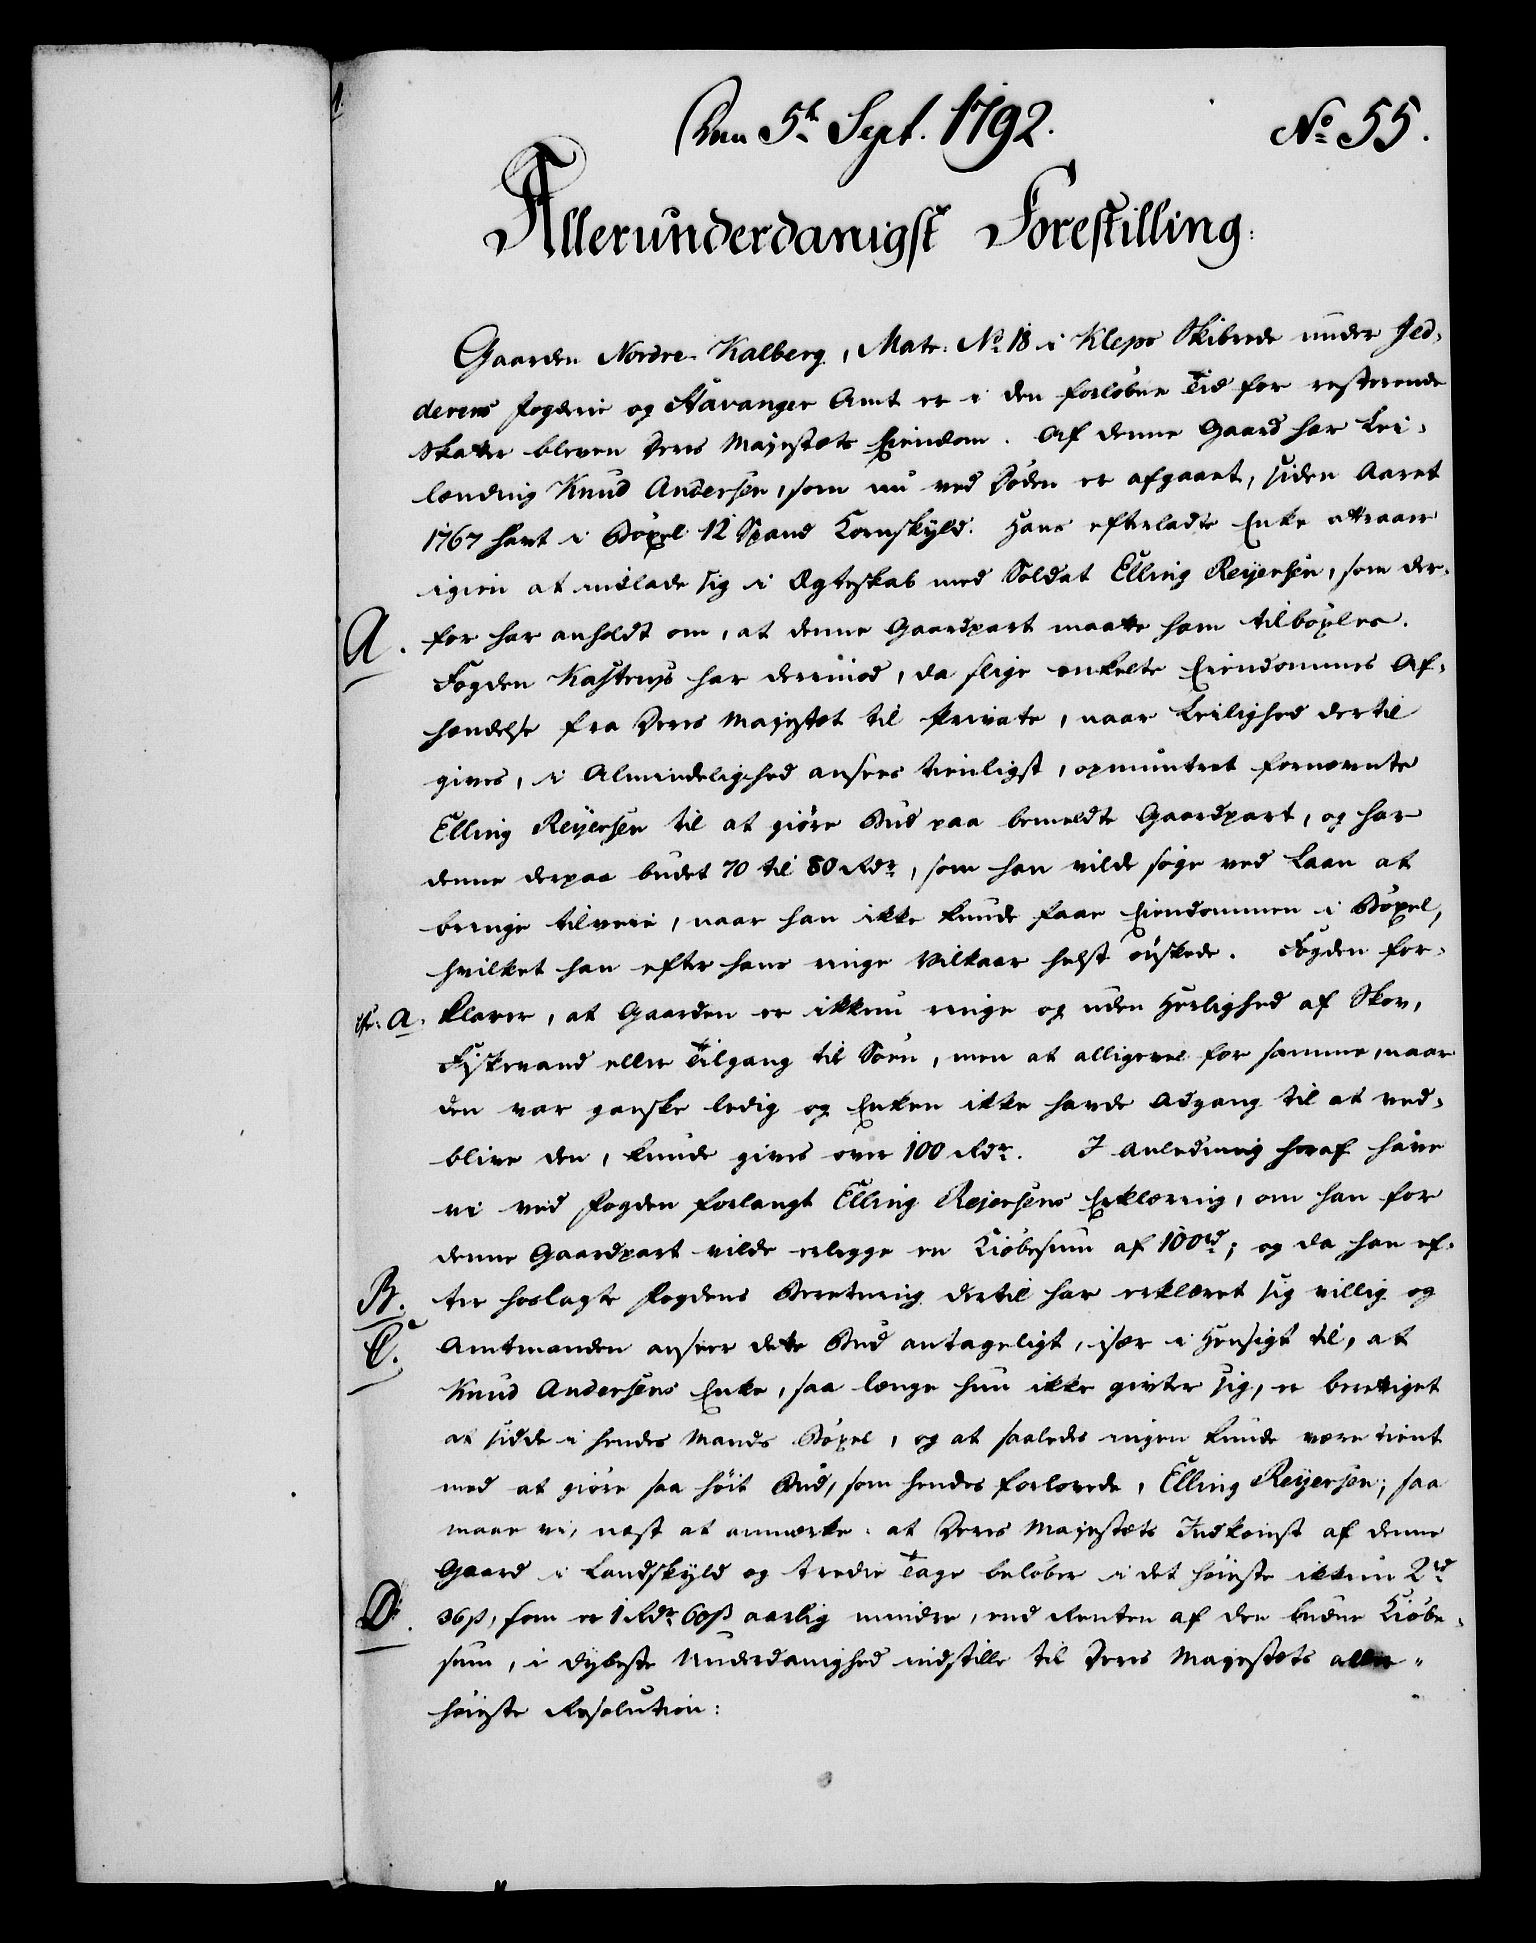 Den 5t Sept. 1792.
No 55.
Allerunderdanigst Forestilling:
Gaarden Nordre Kalberg, Matr: No 18 i Klepe Skibrede under Jed-
derens Fogderie og Stavanger Amt er i den forløbne Tid for resterende
Skatter bleven Deres Majestæts Eiendom. Af denne Gaard har Lei-
lænding Knud Andersen, som nu ved Døden er afgaaet, siden Aaret
1767 havt i Bøxel 12 Spand Kornskyld. Hans efterladte Enke attraaer
igien at indlade sig i Ægteskab med Soldat Elling Reyersen, som der-
A. for har anholdt om, at denne Gaardpart maatte ham tilbøxles.
Fogden Kastrup har derimod, da slige enkelte Eiendommes Af-
hændelse fra Deres Majestæt til Private, naar Leilighed dertil
gives, i Almindelighed ansees tienligst, opmuntret fornævnte
Elling Reyersen til at giøre Bud paa bemeldte Gaardpart, og har
denne derpaa budet 70 til 80 Rdr, som han vilde søge ved Laan at
bringe tilveie, naar han ikke kunde faae Eiendommen i Bøxel,
hvilket han efter hans ringe Vilkaar helst ønskede. Fogden for-
cfr. A. klarer, at Gaarden er ikkun ringe og uden Herlighed af Skov,
Fiskevand eller Tilgang til Søen, men at alligevel for samme, naar
den var ganske ledig og Enken ikke havde Adgang til at ved-
blive den, kunde gives over 100 Rdr. I Anledning heraf have
vi ved Fogden forlangt Elling Rejersens Erklæring, om han for
denne Gaardpart vilde erlegge en Kiøbesum af 100rd; og da han ef-
B. ter hoslagte Fogdens Beretning dertil har erklæret sig villig og
C. Amtmanden anseer dette Bud antageligt, især i Hensigt til, at
Knud Andersens Enke, saa længe hun ikke givter sig, er berettiget
at sidde i hendes Mands Bøxel, og at saaledes ingen kunde være tient
med at giøre saa høit Bud, som hendes Forlovede, Elling Reyersen; saa
maae vi, næst at anmærke: at Deres Majestæts Indkomst af denne
Gaard i Landskyld og tredie Tage beløber i det høieste ikkun 2rd
D. 36ß, som er 1 Rdr 60ß aarlig mindre, end Renten af den budne Kiøbe-
sum, i dybeste Underdanighed indstille til Deres Majestæts aller-
høieste Resolution: